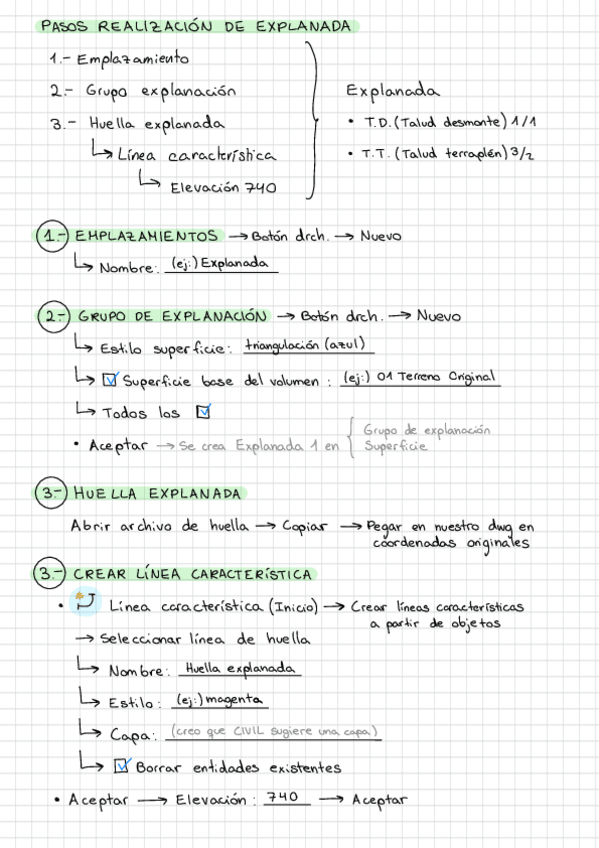 PASOS REALIZACIÓN DE EXPLANADA
1.- Emplazamiento
2.- Grupo explanación
3.- Huella explanada
↳ Línea característica
↳ Elevación 740
Explanada
• T.D. (Talud desmonte) 1/1
• T.T. (Talud terraplén) 3/2
1.- EMPLAZAMIENTOS → Botón drch. → Nuevo
↳ Nombre: (ej:) Explanada
2.- GRUPO DE EXPLANACIÓN → Botón drch. → Nuevo
↳ Estilo superficie: triangulación (azul)
↳ ☑ Superficie base del volumen : (ej:) 01 Terreno Original
↳ Todos los ☑
• Aceptar → Se crea Explanada 1 en { Grupo de explanación
Superficie
3.- HUELLA EXPLANADA
Abrir archivo de huella → Copiar → Pegar en nuestro dwg en
coordenadas originales
3.- CREAR LÍNEA CARACTERÍSTICA
• Línea característica (Inicio) → Crear líneas características
a partir de objetos
→ Seleccionar línea de huella
↳ Nombre: Huella explanada
↳ Estilo: (ej:) magenta
↳ Capa: (creo que CIVIL sugiere una capa)
↳ ☑ Borrar entidades existentes
• Aceptar → Elevación : 740 → Aceptar